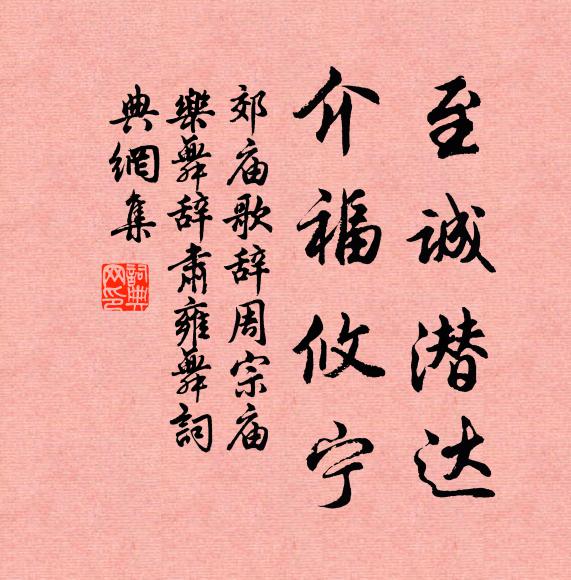 至诚潜达
介福攸宁
郊庙歌辞周宗庙
樂舞辞肃雍舞詞
典網集
詞典
网印